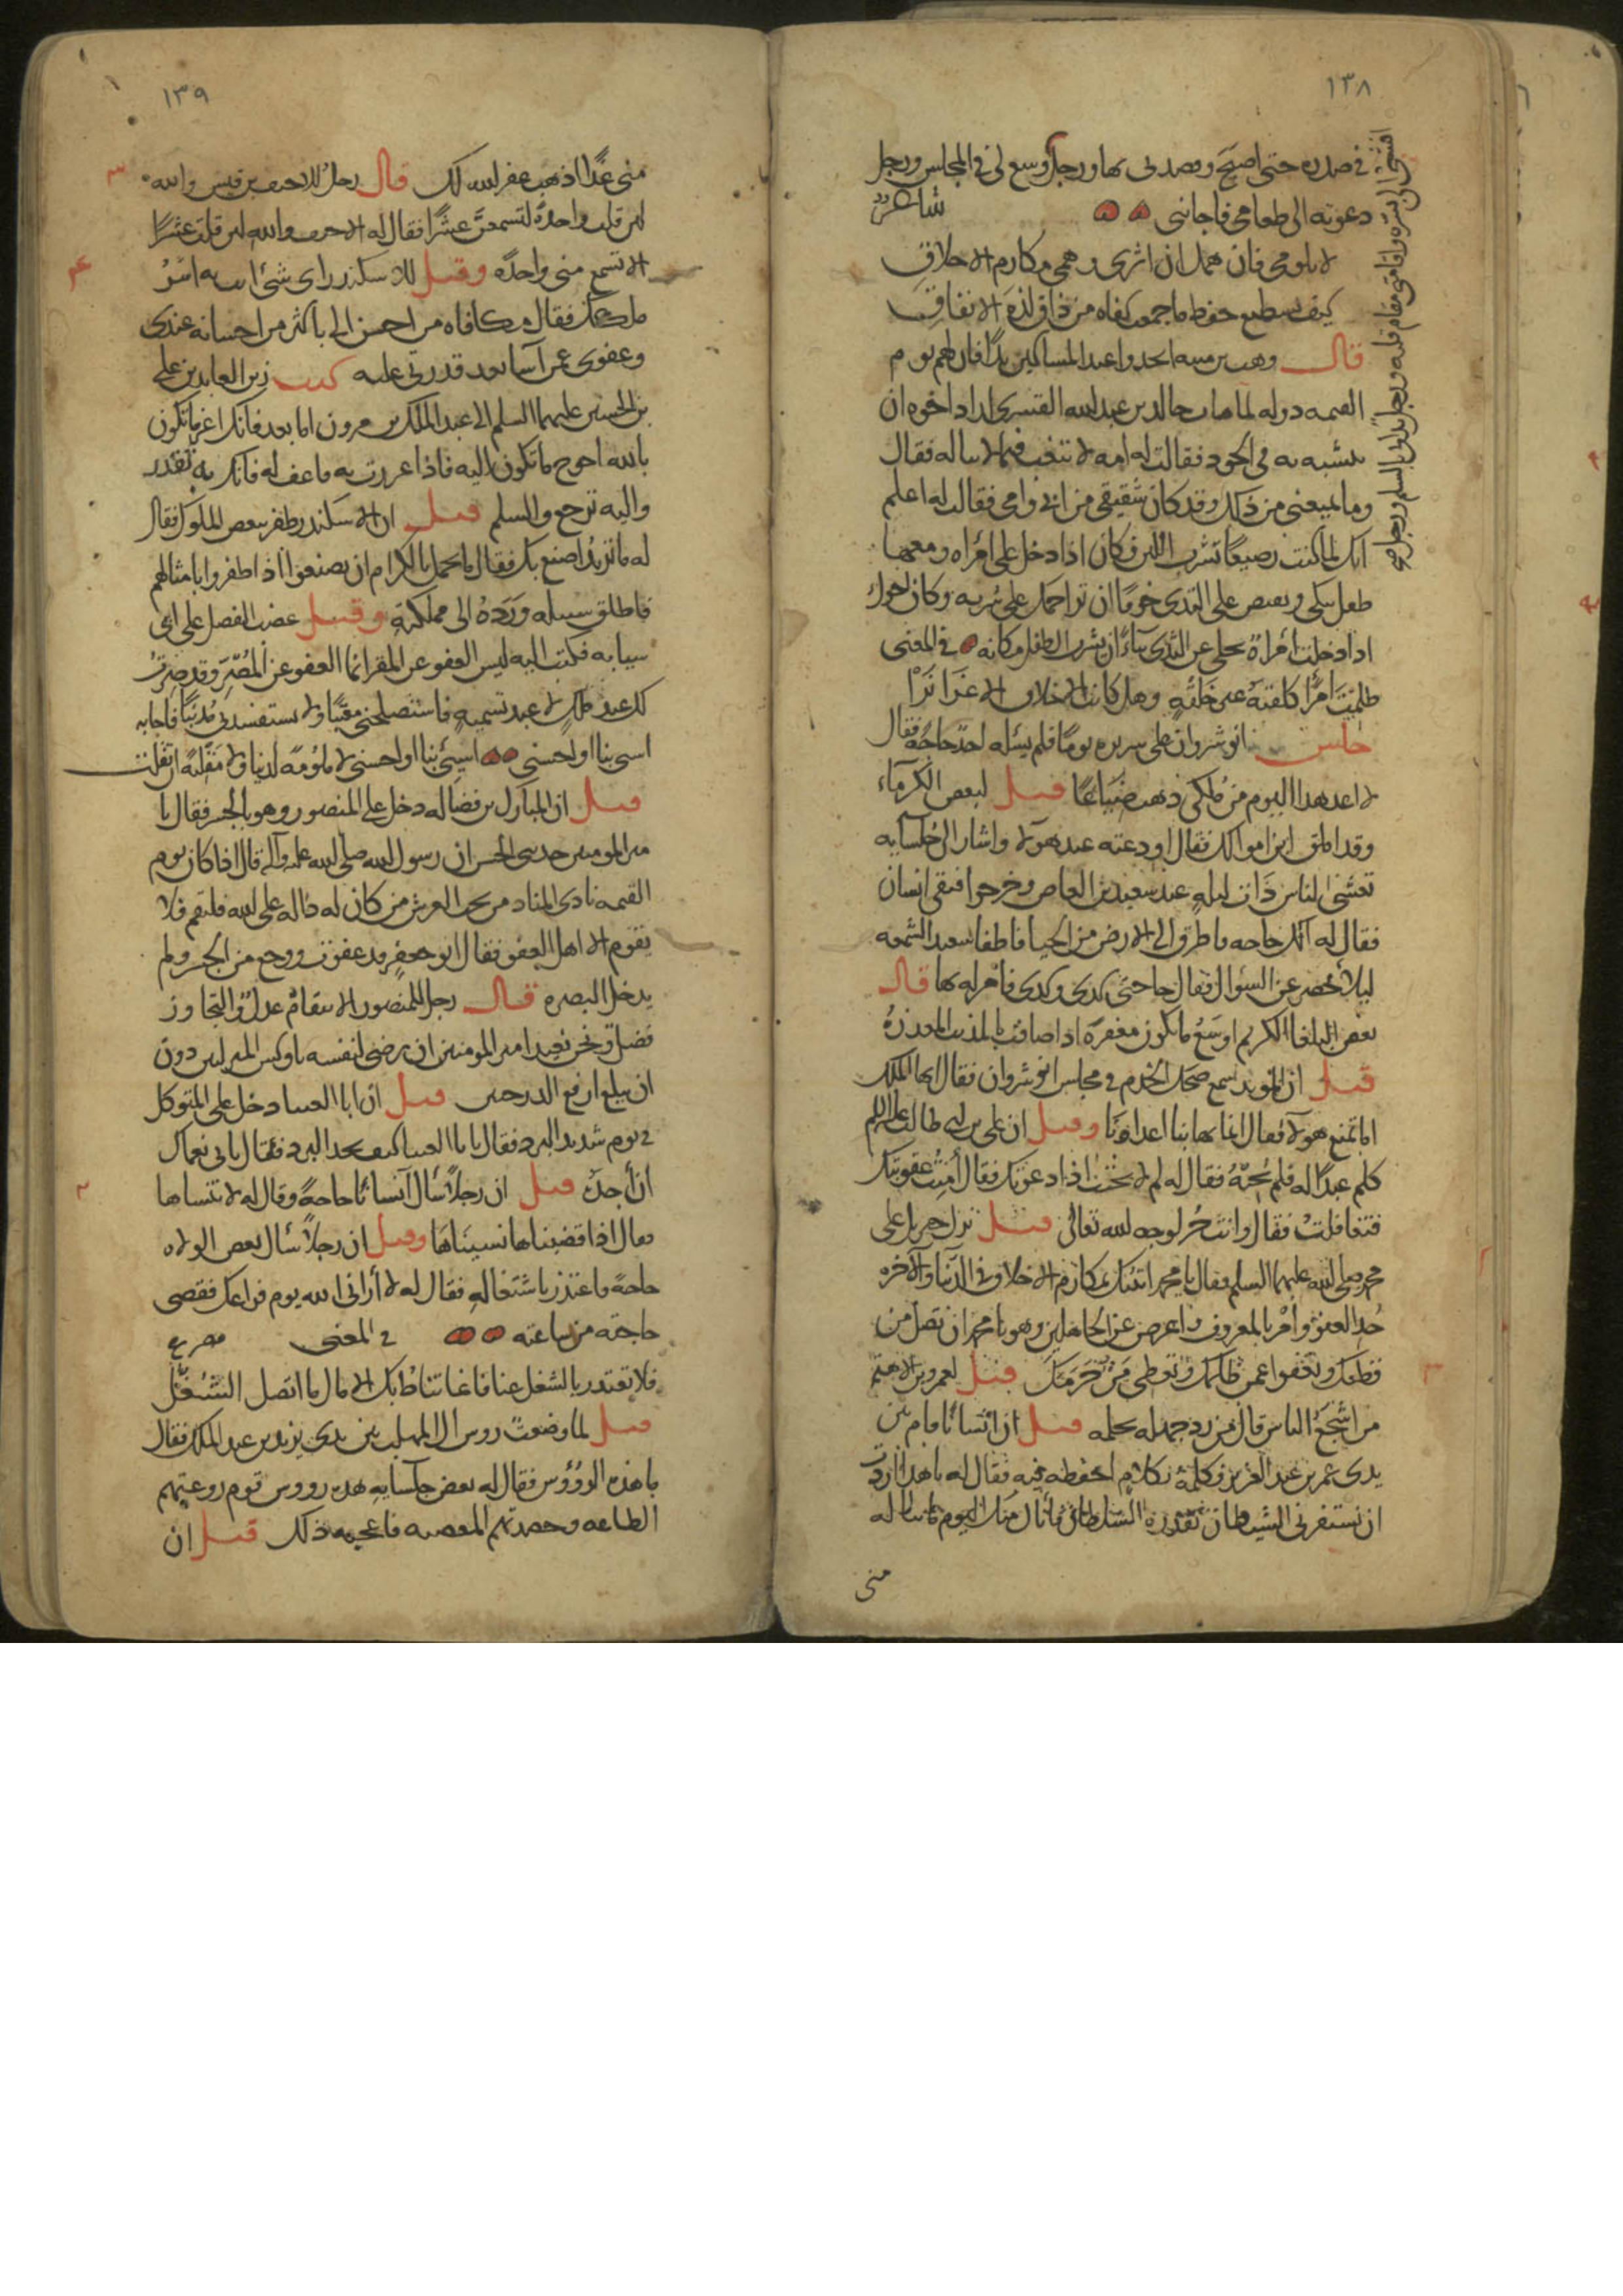 ١٣٨
في صدره حتى اصبح وقصدني بها ورجل وسع لي في المجلس ورجل
دعوته الى طعامي فاجابني شاعر
لا تلومي فان همك ان اثرى وهمي مكارم الاخلاق
كيف يسطيع حفظ ما جمعت كفاه من ذاق لذة الانفاق
قال وهب بن منبه اتخذوا عند المساكين يدا فان لهم يوم
القيمه دوله لما مات خالد بن عبد الله القسرى اراد اخوه ان
يتشبه به في الجود فقالت له امه لا تتعب فيما لا تناله فقال
وما يمنعني من ذلك وقد كان شقيقي من ابي وامي فقالت له اعلم
انك لما كنت رضيعا تشرب اللبن فكان اذا دخل على امراه ومعها
طفل تبكي وتعض على الثدي خوفا ان تواحمك على شربه وكان اخوك
اذا دخلت امراة تخلى عن الثدي ان يشرب الطفل مكانه في المعنى
طلبت امرا كلفته غير خلقه وهل كانت الاخلاق الا غرائزا
جلس انوشروان على سريره يوما فلم يسئله احد حاجة فقال
لا اعد هذا اليوم من ملكي ذهب ضياعا قيل لبعض الكرماء
وقد املق اين اموالك فقال اودعته عند هولا واشار الى جلسايه
تعشى الناس ذات ليلة عند سعيد بن العاص وخرجوا فبقى انسان
فقال له الك حاجه فاطرق الى الارض من الحيا فاطفا سعيد الشمعه
ليلا يحصر عن السؤال فقال حاجتى كذى وكذى فامر له بها قال
بعض البلغا الكريم اوسع ما يكون مغفرة اذا ضاقت بالمذنب المعذرة
قيل ان الموبد سمع ضحك الخدم في مجلس انوشروان فقال ايها الملك
اما تمنع هولا فقال انما يهابنا اعداونا وقيل ان على بن ابي طالب عليه السلم
كلم عبدا له فلم يجبه فقال له لم لا تجبني اذا دعوتك فقال امنت عقوبتك
فتغافلت فقال وانت حر لوجه الله تعالى قيل نزل جبريل على
محمد صلى الله عليهما السلم فقال يا محمد اتيتك بمكارم الاخلاق في الدنيا والآخره
خذ العفو وامر بالمعروف واعرض عن الجاهلين وهو يا محمد ان تصل من
قطعك وتعفوا عمن ظلمك وتعطى من حرمك قيل لعمرو بن الاهتم
من اشجع الناس قال من رد جهله بحلمه قيل ان انسانا قام بين
يدى عمر بن عبد العزيز فكلمه بكلام احفظه فيه فقال له يا هذا اردت
ان يستفزني الشيطان بقدرة السلطان فانال منك اليوم ما تناله
منى
١٣٩
منى غدا اذهب غفر الله لك قال رجل للاحنف بن قيس والله
لئن قلت واحدة لتسمعن عشرا فقال له الاحنف والله لئن قلت عشرا
لا تسمع منى واحدة وقيل للاسكندر اي شئ انت به اسر
ملكك فقال مكافاه من احسن الى باكثر من احسانه عندى
وعفوى عمن اسا بعد قدرتي عليه كتب زين العابدين على
بن الحسين عليهما السلم الى عبد الملك بن مرون اما بعد فانك اعز ما تكون
بالله احوج ما تكون اليه فاذا عززت به فاعف له فانك به تقدر
واليه ترجع والسلم قيل ان الاسكندر ظفر ببعض الملوك فقال
له ما تريد اصنع بك فقال ما يجمل بالكرام ان يصنعوا اذا ظفروا بامثالهم
فاطلق سبيله ورده الى مملكته وقيل غضب الفضل على ابي
سيابه فكتب اليه ليس العفو عن المقر انما العفو عن المصر وقد صرت
لك عبد فاستصلحني ولا تستفسدني مذنبا فاجابه
اسى بنا او احسنى اسيئي بنا او احسني لا ملومة لدينا ولا مقلية ان تقلت
قيل ان المبارك بن فضاله دخل على المنصور وهو بالجسر فقال يا
امير المومنين حدثنى الحسن ان رسول الله صلى الله عليه وآله قال اذا كان يوم
القيمه نادى المناد من تحت العرش من كان له داله على الله فليقم فلا
يقوم الا اهل العفو فقال ابو جعفر قد عفوت ورجع من الجسر ولم
يدخل البصره قال رجل للمنصور الانتقام عدل والتجاوز
فضل ونحن نعيذ امير المومنين ان يرضى لنفسه باوكس النصيبين دون
ان يبلغ ارفع الدرجتين قيل ان ابا العينا دخل على المتوكل
في يوم شديد البرد فقال يا با العينا كيف تجد البرد فقال يابى نعمآك
أن أجده قيل ان رجلا سال آنسانا حاجة وقال له لا تنساها
فقال اذا قضيناها نسيناها وقيل ان رجلا سئال بعض الولاه
حاجة فاعتذر باشتغاله فقال له لا أراني الله يوم فراغك فقضى
حاجته من ساعته في المعنى مصرع
فلا تعتذر بالشغل عنا فانما تناط بك الامال ما اتصل الشغل
قيل لما وضعت روس ال المهلب بين يدى يزيد بن عبد الملك فقال
ما هذه الرؤوس فقال له بعض جلسايه هذه رووس قوم روعتهم
الطاعه وحصدتهم المعصيه فاعجبه ذلك قيل ان